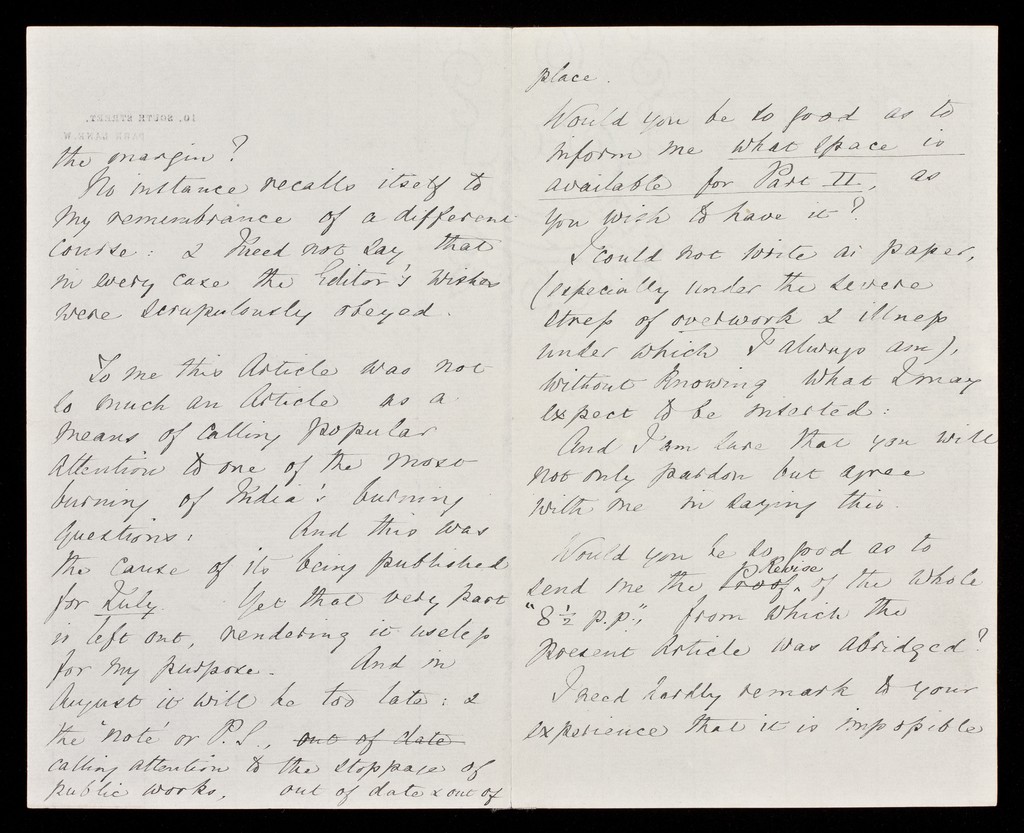 10, SOUTH STREET,
PARK LANE. W.
the margin?
No instance recalls itself to
my remembrance of a different
course: & I need not say that
in every case the Editor's wishes
were scrupulously obeyed.
To me this Article was not
so much an Article as a
means of calling popular
attention to one of the most
burning of India's burning
questions: And this was
the cause of its being published
for July. Yet that very part
is left out, rendering it useless
for my purpose. And in
August it will be too late: &
the 'note' or P.S., out of date
calling attention to the stoppage of
public works, out of date & out of
place.
Would you be so good as to
inform me what space is
available for Part II, as
you wish to have it?
I could not write a paper,
(especially under the severe
stress of overwork & illness
under which I always am),
without knowing what I may
expect to be inserted:
And I am sure that you will
not only pardon but agree
with me in saying this.
Would you be so good as to
send me the Proof Revise of the whole
"8½ p.p.", from which the
present Article was abridged?
I need hardly remark to your
experience that it is impossible